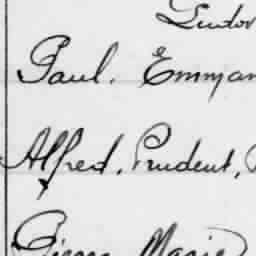 Ludov
Paul. Emman
Alfred, Prudent,
Pierre Marie